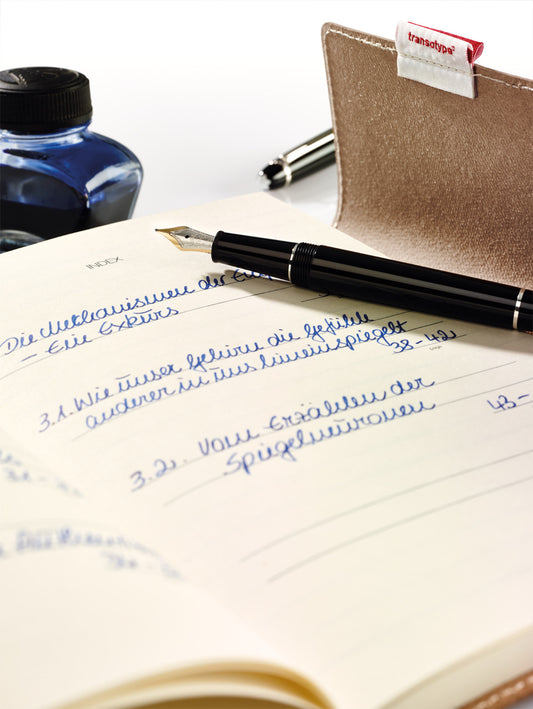 transotype
INDEX
Die Mechanismen der
– Ein Exkurs
3.1. Wie unser Gehirn die Gefühle
anderer in uns hineinspiegelt
38-42
3.2. Vom Erzählen der
Spiegelneuronen
43-